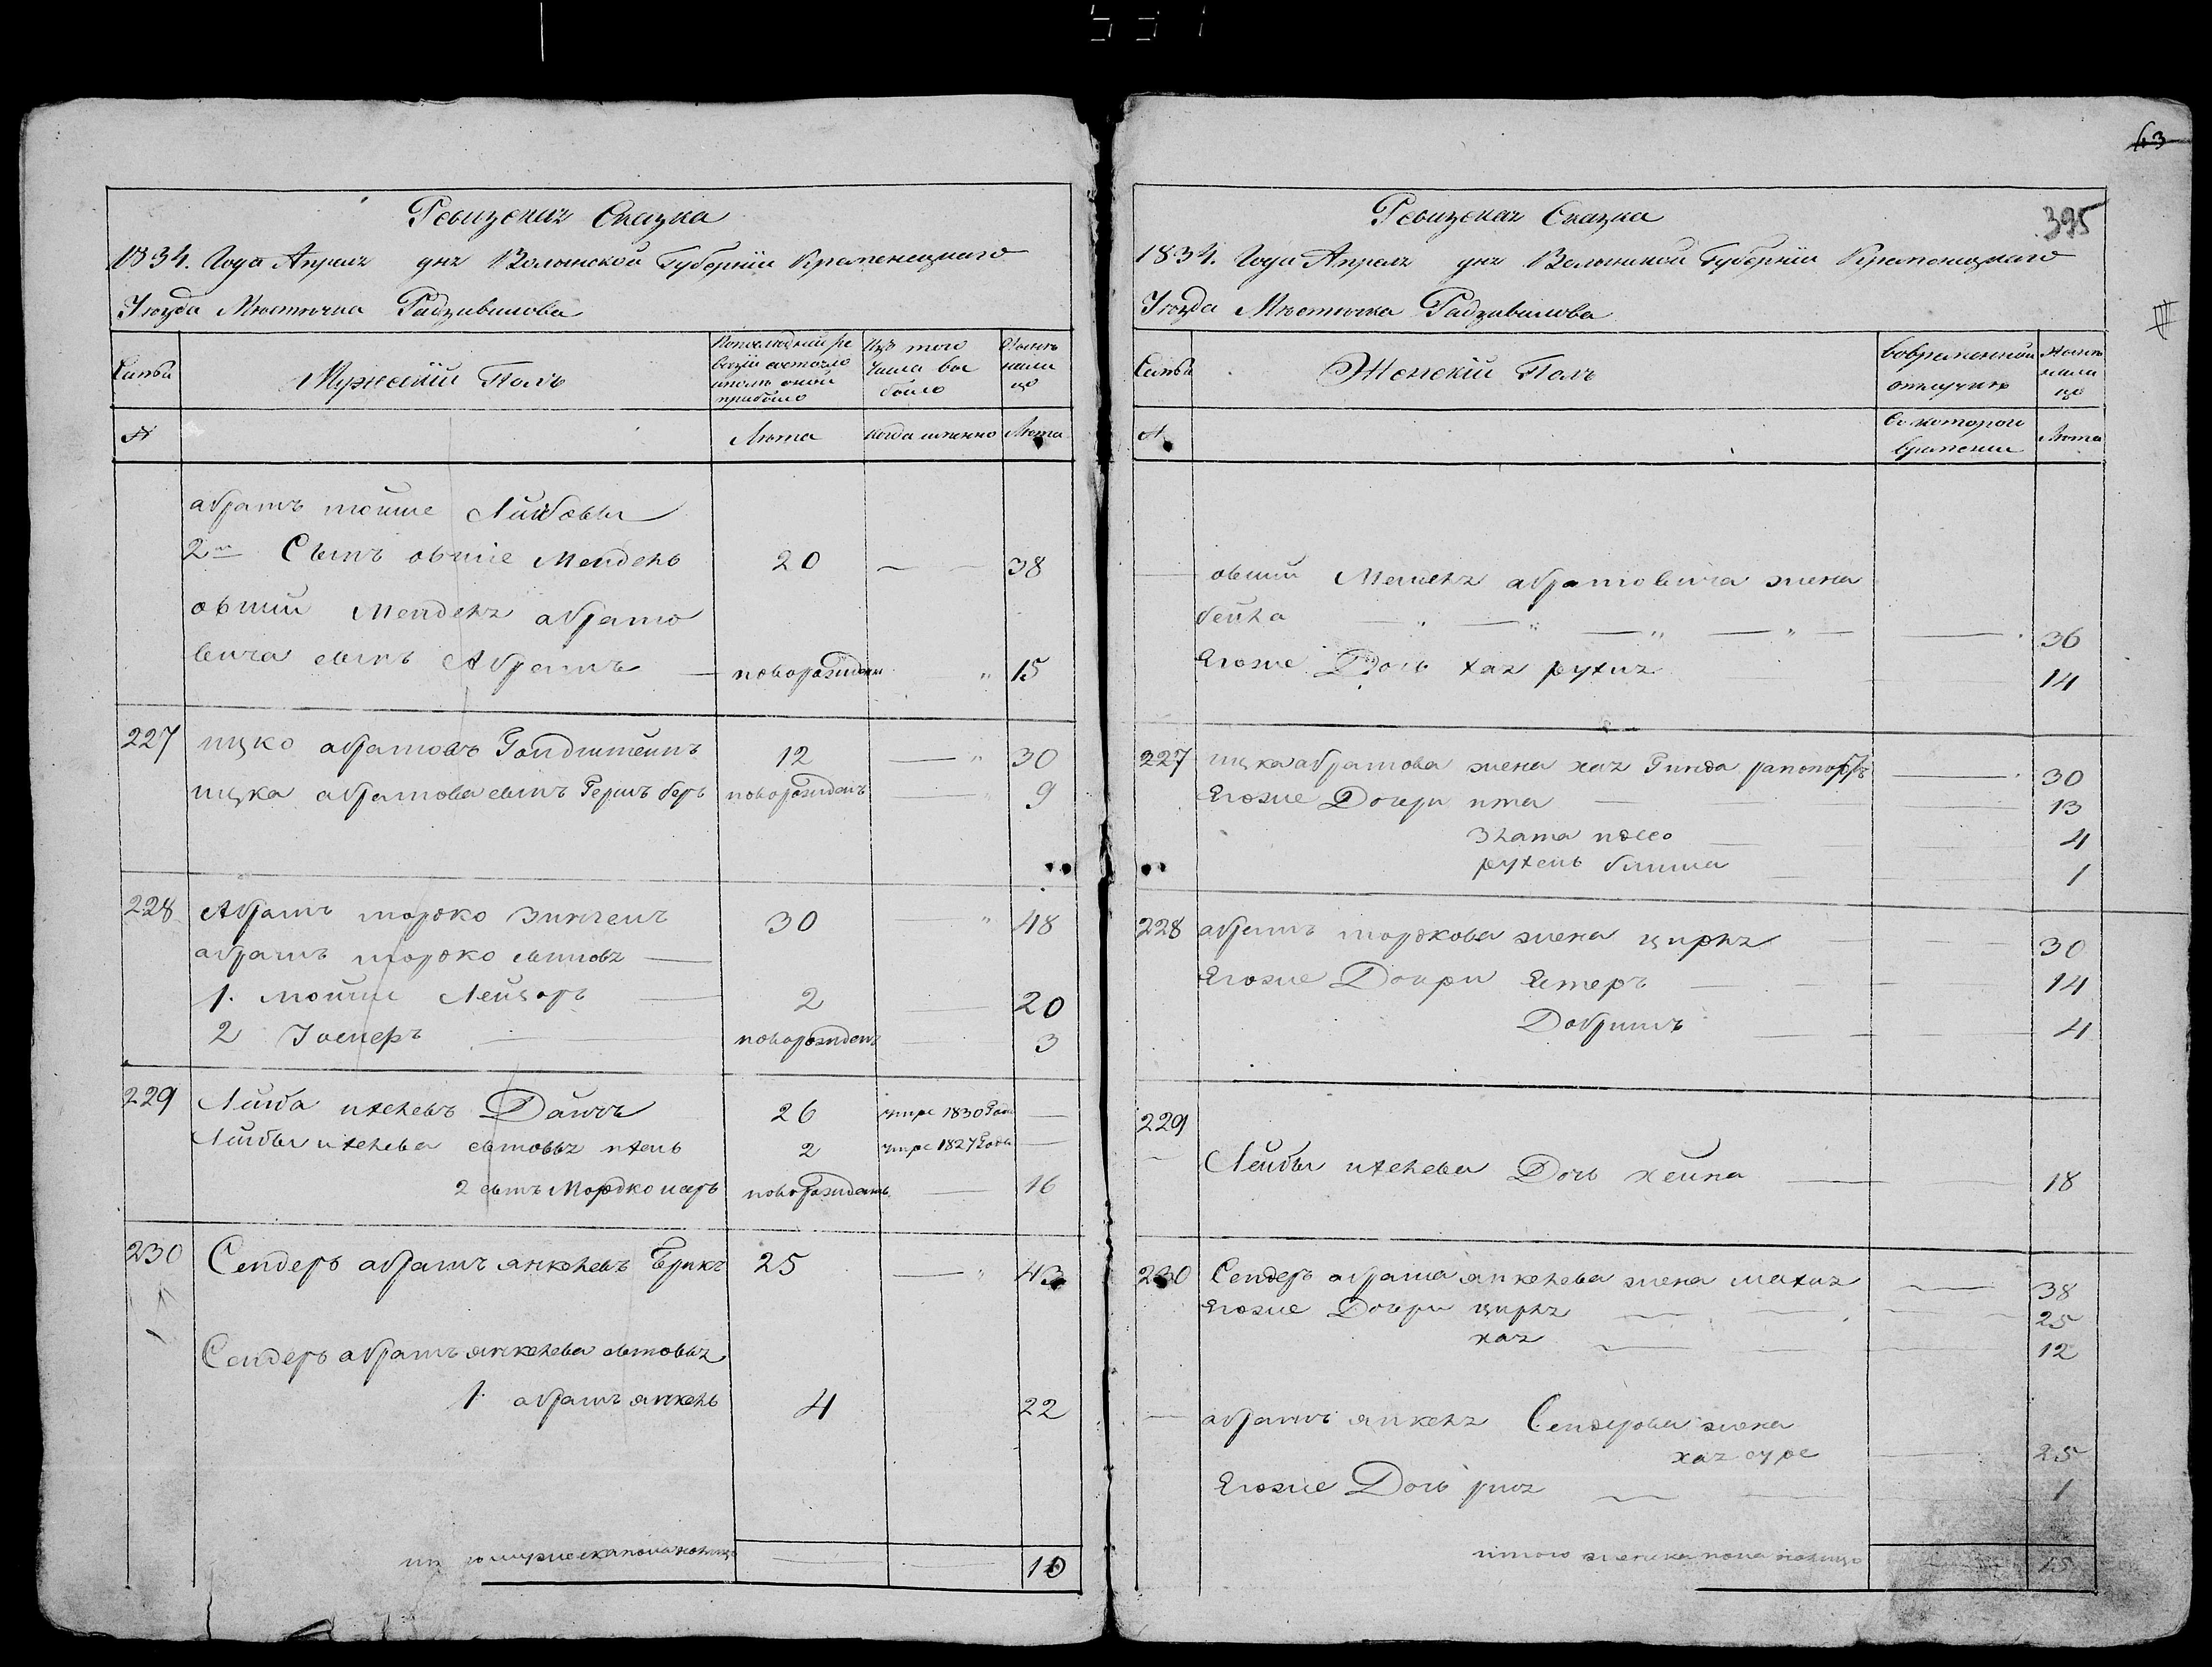 43
Ревизская Сказка
1834. Года Апреля дня Волынской Губернии Кременецкаго
Уезда Местечка Радзивилова
Семьи
Мужский Полъ
По последней ре
визии состояло
и после оной
прибыло
Изъ того
числа вы
было
Ныне
на ли
цо
№
Лета
когда именно
Лета
абрамъ мойше Лейбовы
2й Сынъ овшие Мендель 20 38
овший Менделя абрамо
вича сынъ Абрамъ новорожденъ 15
227 ицко абрамовъ Голдштейнъ 12 30
ицка абрамова сынъ Гершъ беръ новорожденъ 9
228 Абрамъ мордко Зингелъ 30 48
абрамъ мордко сыновя
1. мойше Лейзоръ 2 20
2 новорожденъ 3
229 Лейба ихелевъ 26 умре 1830 Года
Лейбы ихелева сыновья ихель 2 умре 1827 Года
2 сынъ Мордко исеръ новорожденъ 16
230 Сендеръ абрамъ янкелевъ Брикъ 25 43
Сендеръ абрамъ янкелева сыновья
1. абрамъ янкель 4 22
итого мужеска пола налицо 10
Ревизская Сказка
395
1834. Года Апреля дня Волынской Губернии Кременецкаго
Уезда Местечка Радзивилова
Семьи
Женский Полъ
Во временной
отлучке
Ныне
на ли
цо
№
Съ котораго
времени
Лета
овший Менделя абрамовича жена
бейла 36
Егоже Дочь хая рухля 14
227 ицка абрамова жена хая Гинда рапопортъ 30
Егоже Дочери ита 13
злата песео 4
рухель блима 1
228 абрамъ мордкова жена цирля 30
Егоже Дочери Естеръ 14
Добришъ 4
229
Лейбы ихелева Дочь хейна 18
230 Сендеръ абрама янкелева жена малия 38
Егоже Дочери цирля 25
хая 12
абрамъ янкеля Сендерова жена
хая суре 25
Егоже Дочь рися 1
итого женска пола налицо 15